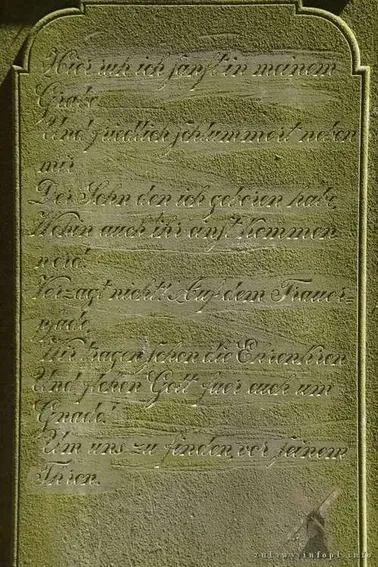 Hier ruh ich sanft in meinem
Grabe
Und friedlich schlummert neben
mir
Der Sohn den ich geboren habe,
Wohin auch ihr einst kommen
werd!
Verzagt nicht! Auf dem Trauer-
pfade,
Wir tragen schon die Ehrenkron
Und flehen Gott fuer euch um
Gnade!
Um uns zu finden vor seinem
Thron.